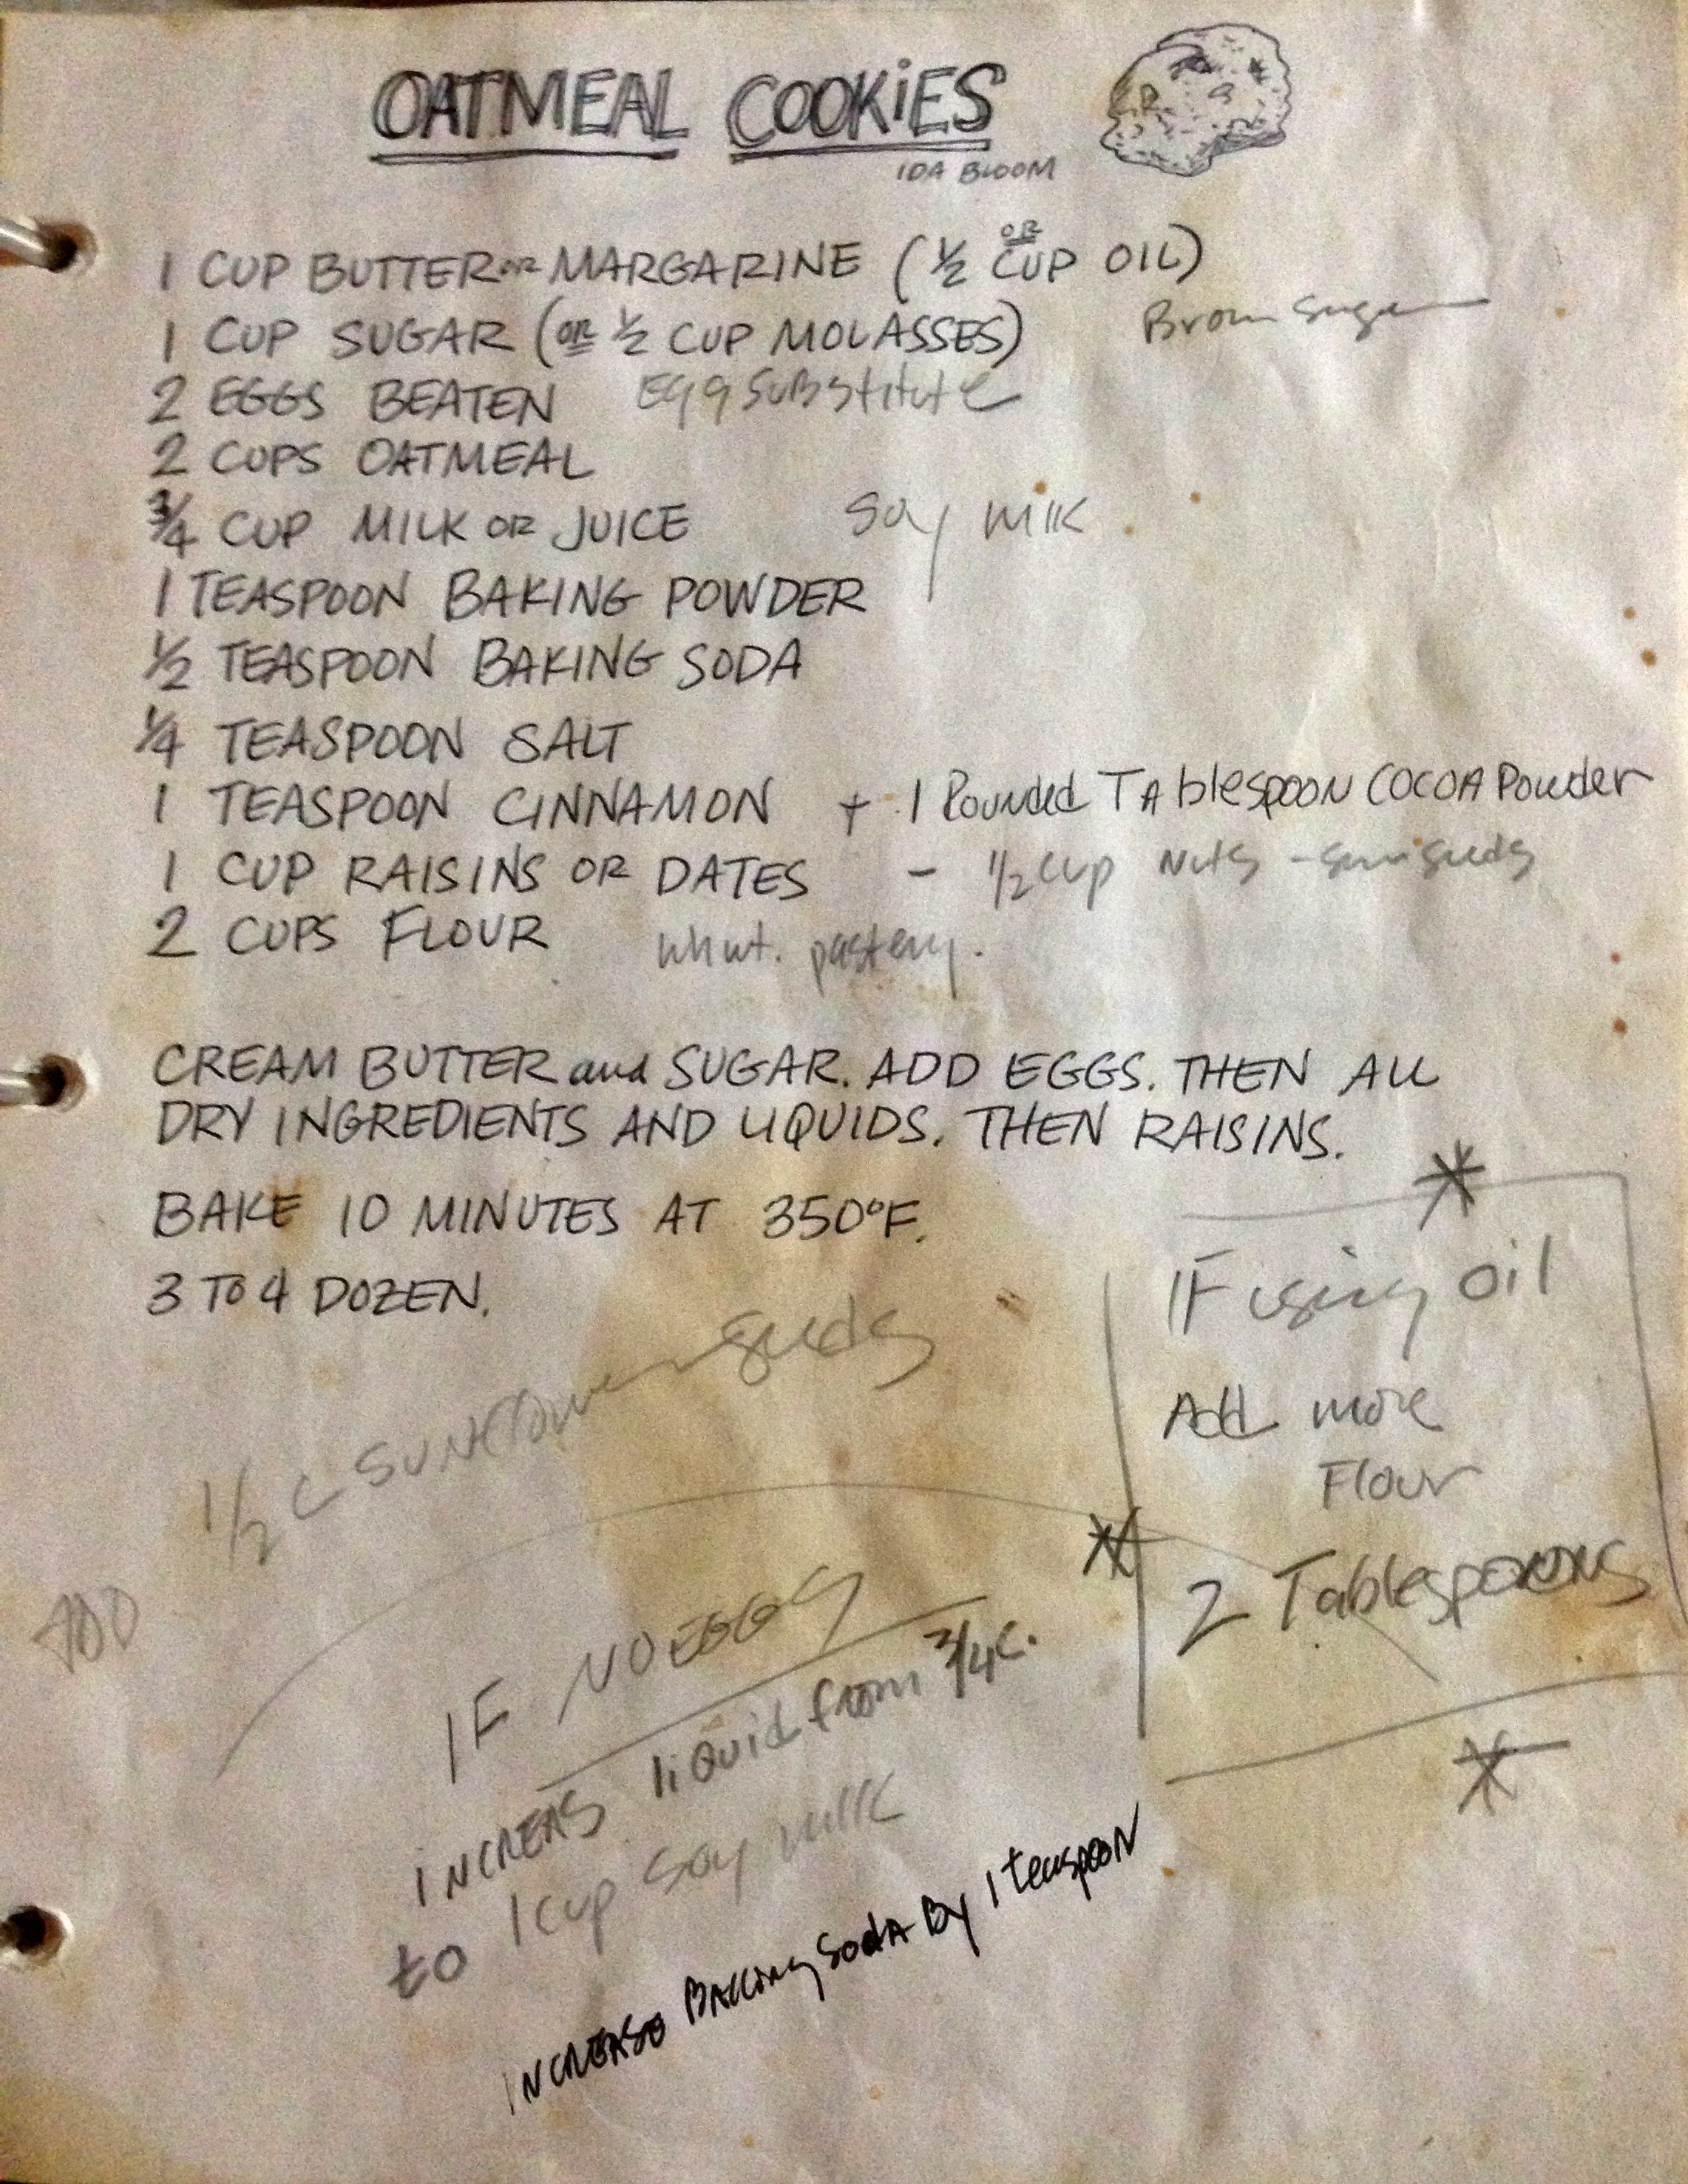 OATMEAL COOKiES
IDA BLOOM
1 CUP BUTTER OR MARGARINE (½ OR CUP OIL)
1 CUP SUGAR (OR ½ CUP MOLASSES) Brown Sugar
2 EGGS BEATEN Egg Substitute
2 CUPS OATMEAL
¾ CUP MILK OR JUICE Soy milk
1 TEASPOON BAKING POWDER
½ TEASPOON BAKING SODA
¼ TEASPOON SALT
1 TEASPOON CINNAMON + 1 Rounded TAblespooN COCOA Powder
1 CUP RAISINS OR DATES - ½ cup Nuts - sunseeds
2 CUPS FLOUR pastery.
CREAM BUTTER and SUGAR. ADD EGGS. THEN ALL
DRY INGREDIENTS AND LIQUIDS. THEN RAISINS.
BAKE 10 MINUTES AT 350°F.
3 TO 4 DOZEN.
1/2 C SUNFlower seeds
ADD
* IF using oil
Add more
Flour
* 2 Tablespoons
*
IF NO EGGS
INCREAS liquid from 3/4 c.
to 1 cup soy milk
INCREASE Baking Soda By 1 teaspooN